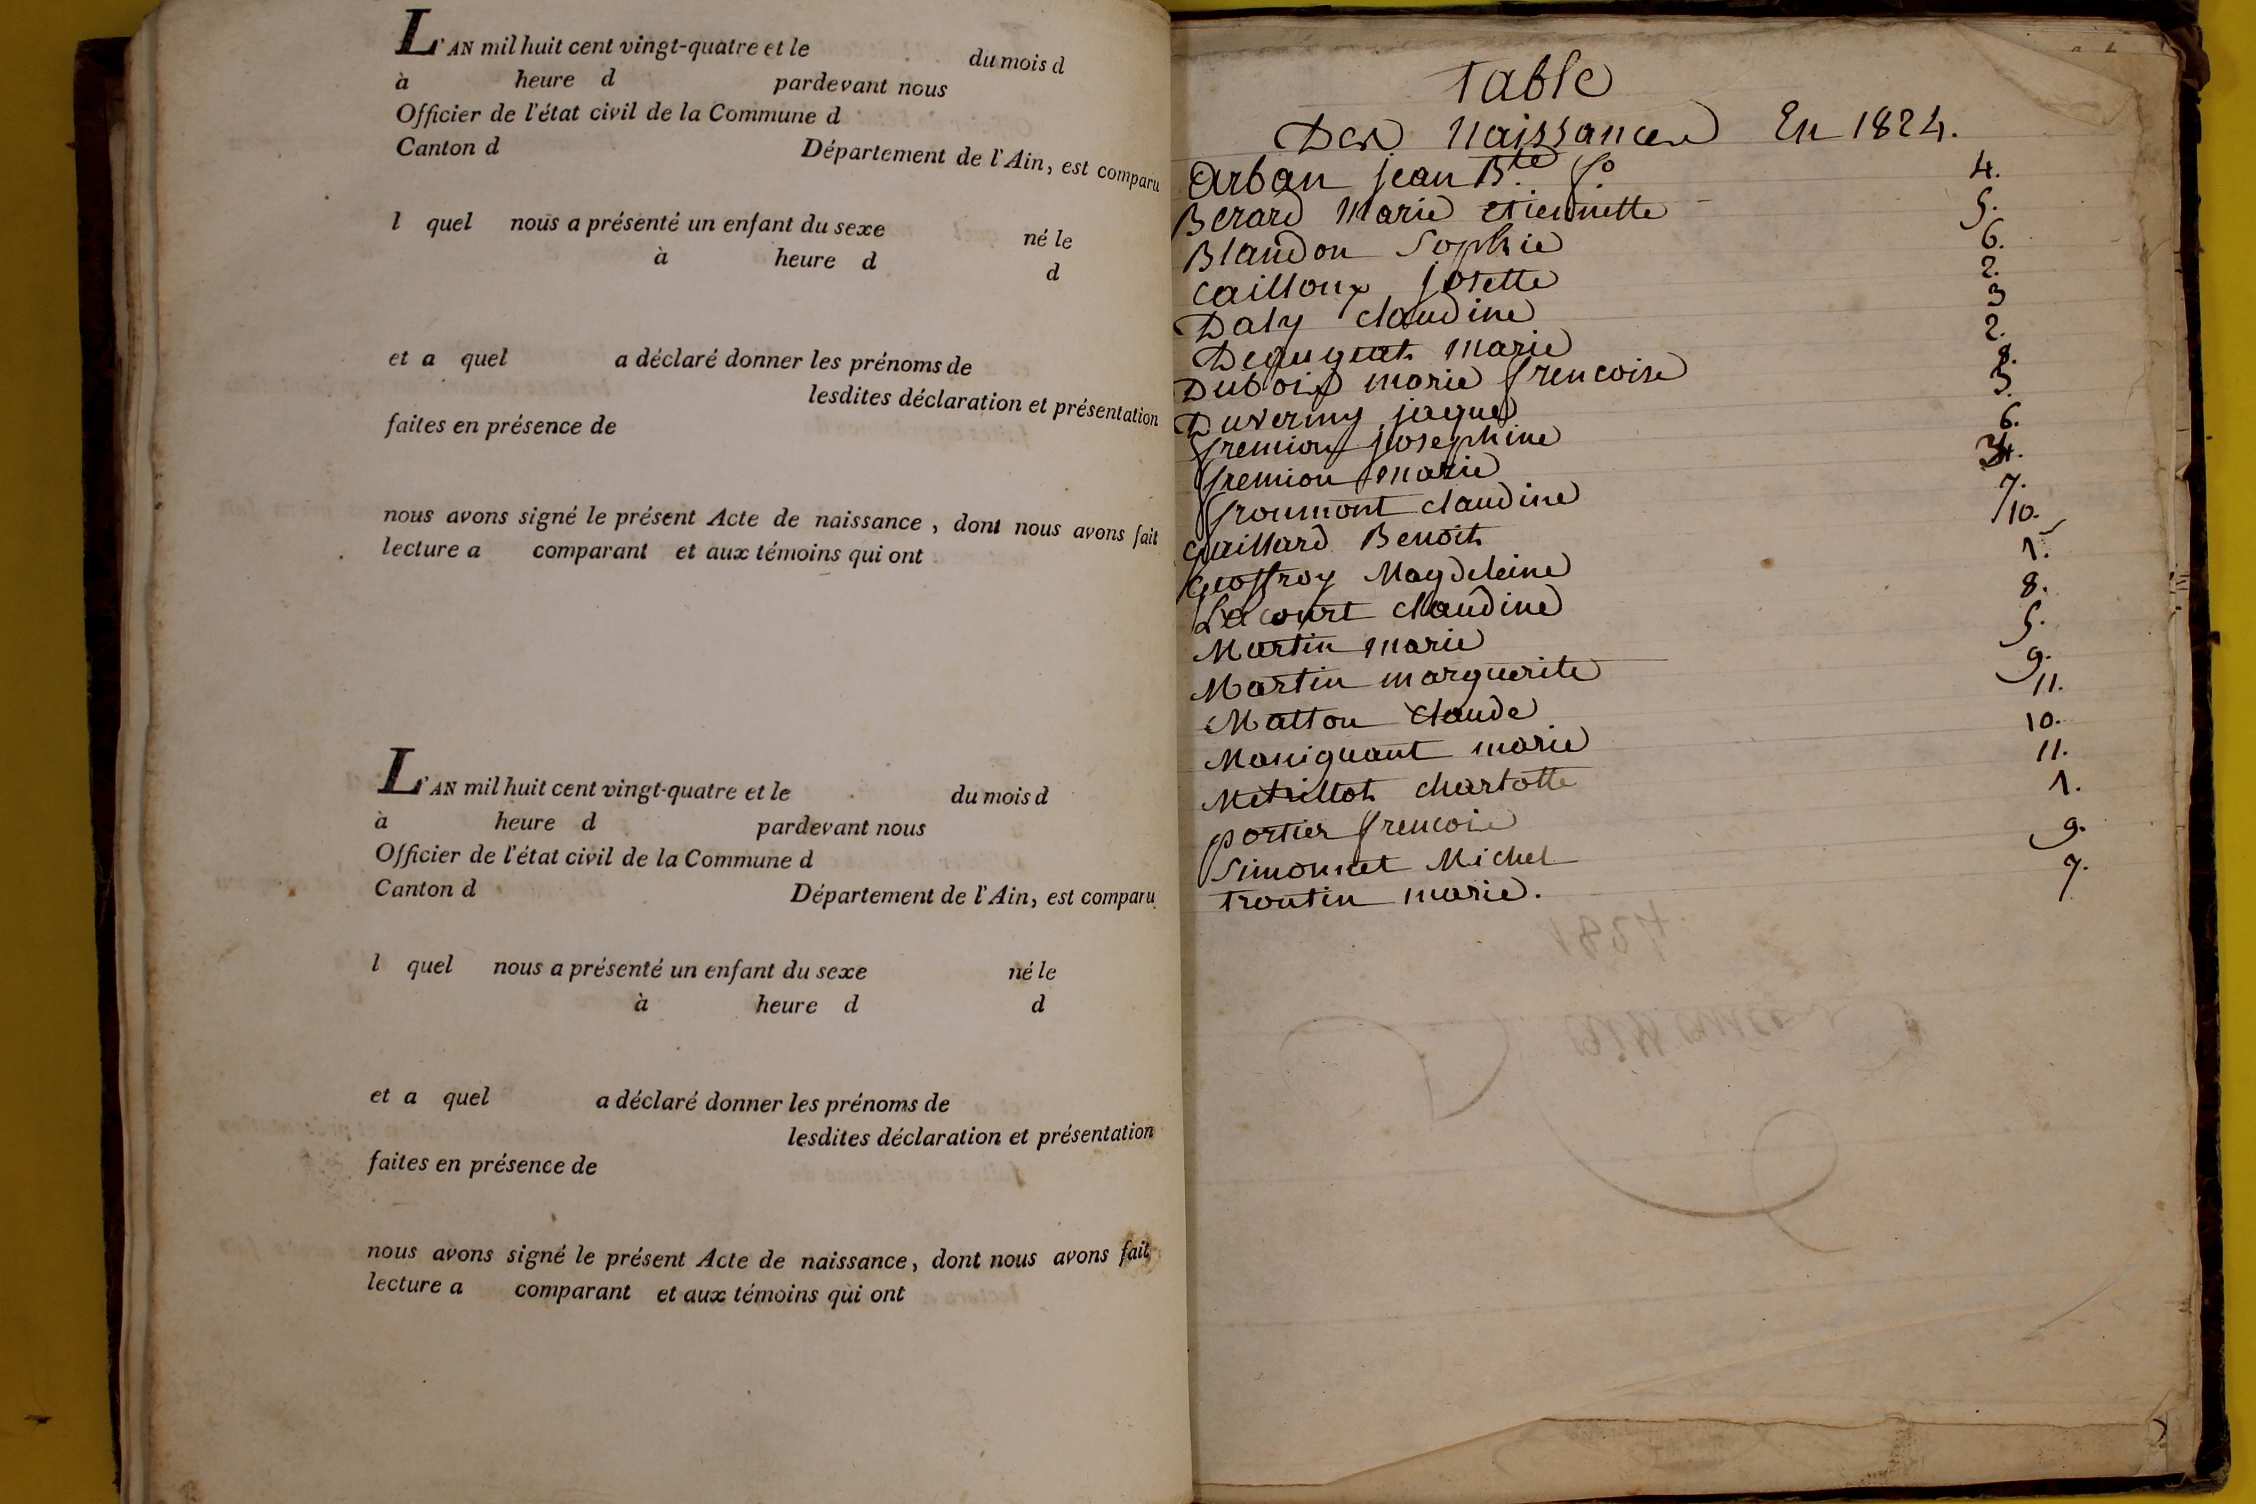 L'AN mil huit cent vingt-quatre et le du mois d
à heure d pardevant nous
Officier de l'état civil de la Commune d
Canton d Département de l'Ain, est comparu
l quel nous a présenté un enfant du sexe né le
à heure d d
et a quel a déclaré donner les prénoms de
lesdites déclaration et présentation
faites en présence de
nous avons signé le présent Acte de naissance, dont nous avons fait
lecture a comparant et aux témoins qui ont
L'AN mil huit cent vingt-quatre et le du mois d
à heure d pardevant nous
Officier de l'état civil de la Commune d
Canton d Département de l'Ain, est comparu
l quel nous a présenté un enfant du sexe né le
à heure d d
et a quel a déclaré donner les prénoms de
lesdites déclaration et présentation
faites en présence de
nous avons signé le présent Acte de naissance, dont nous avons fait
lecture a comparant et aux témoins qui ont
Table
Des Naissances En 1824.
Arban jean Bte fo 4.
Berard Marie etiennette 5.
Blandon Sophie 6.
Cailloux josette 2.
Daly claudine 3
marie 2.
Dubois marie frencoise 8.
Duverny jaques 5.
fremion josephine 6.
fremion marie
froumont claudine 7.
Gaillard Benoit 10.
Geoffroy Magdeleine 1.
Lacourt claudine 8.
Martin marie 5.
Martin marguerite 9.
Matton claude 11.
Maniquant marie 10.
Metrillot charlotte 11.
portier frencois 1.
Simonnet Michel 9.
troutin marie. 7.